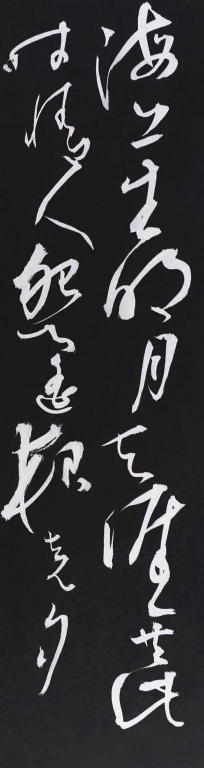 海上生明月天涯共此
時情人怨遙夜竟夕